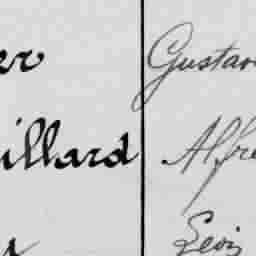 er Gustav
illard Alfre
Levi